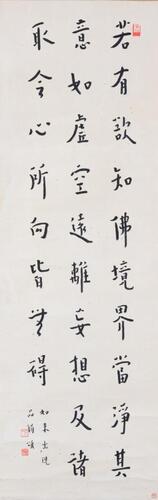 若有欲知佛境界當淨其
意如虛空遠離妄想及諸
取令心所向皆無礙
如來出現
品頌